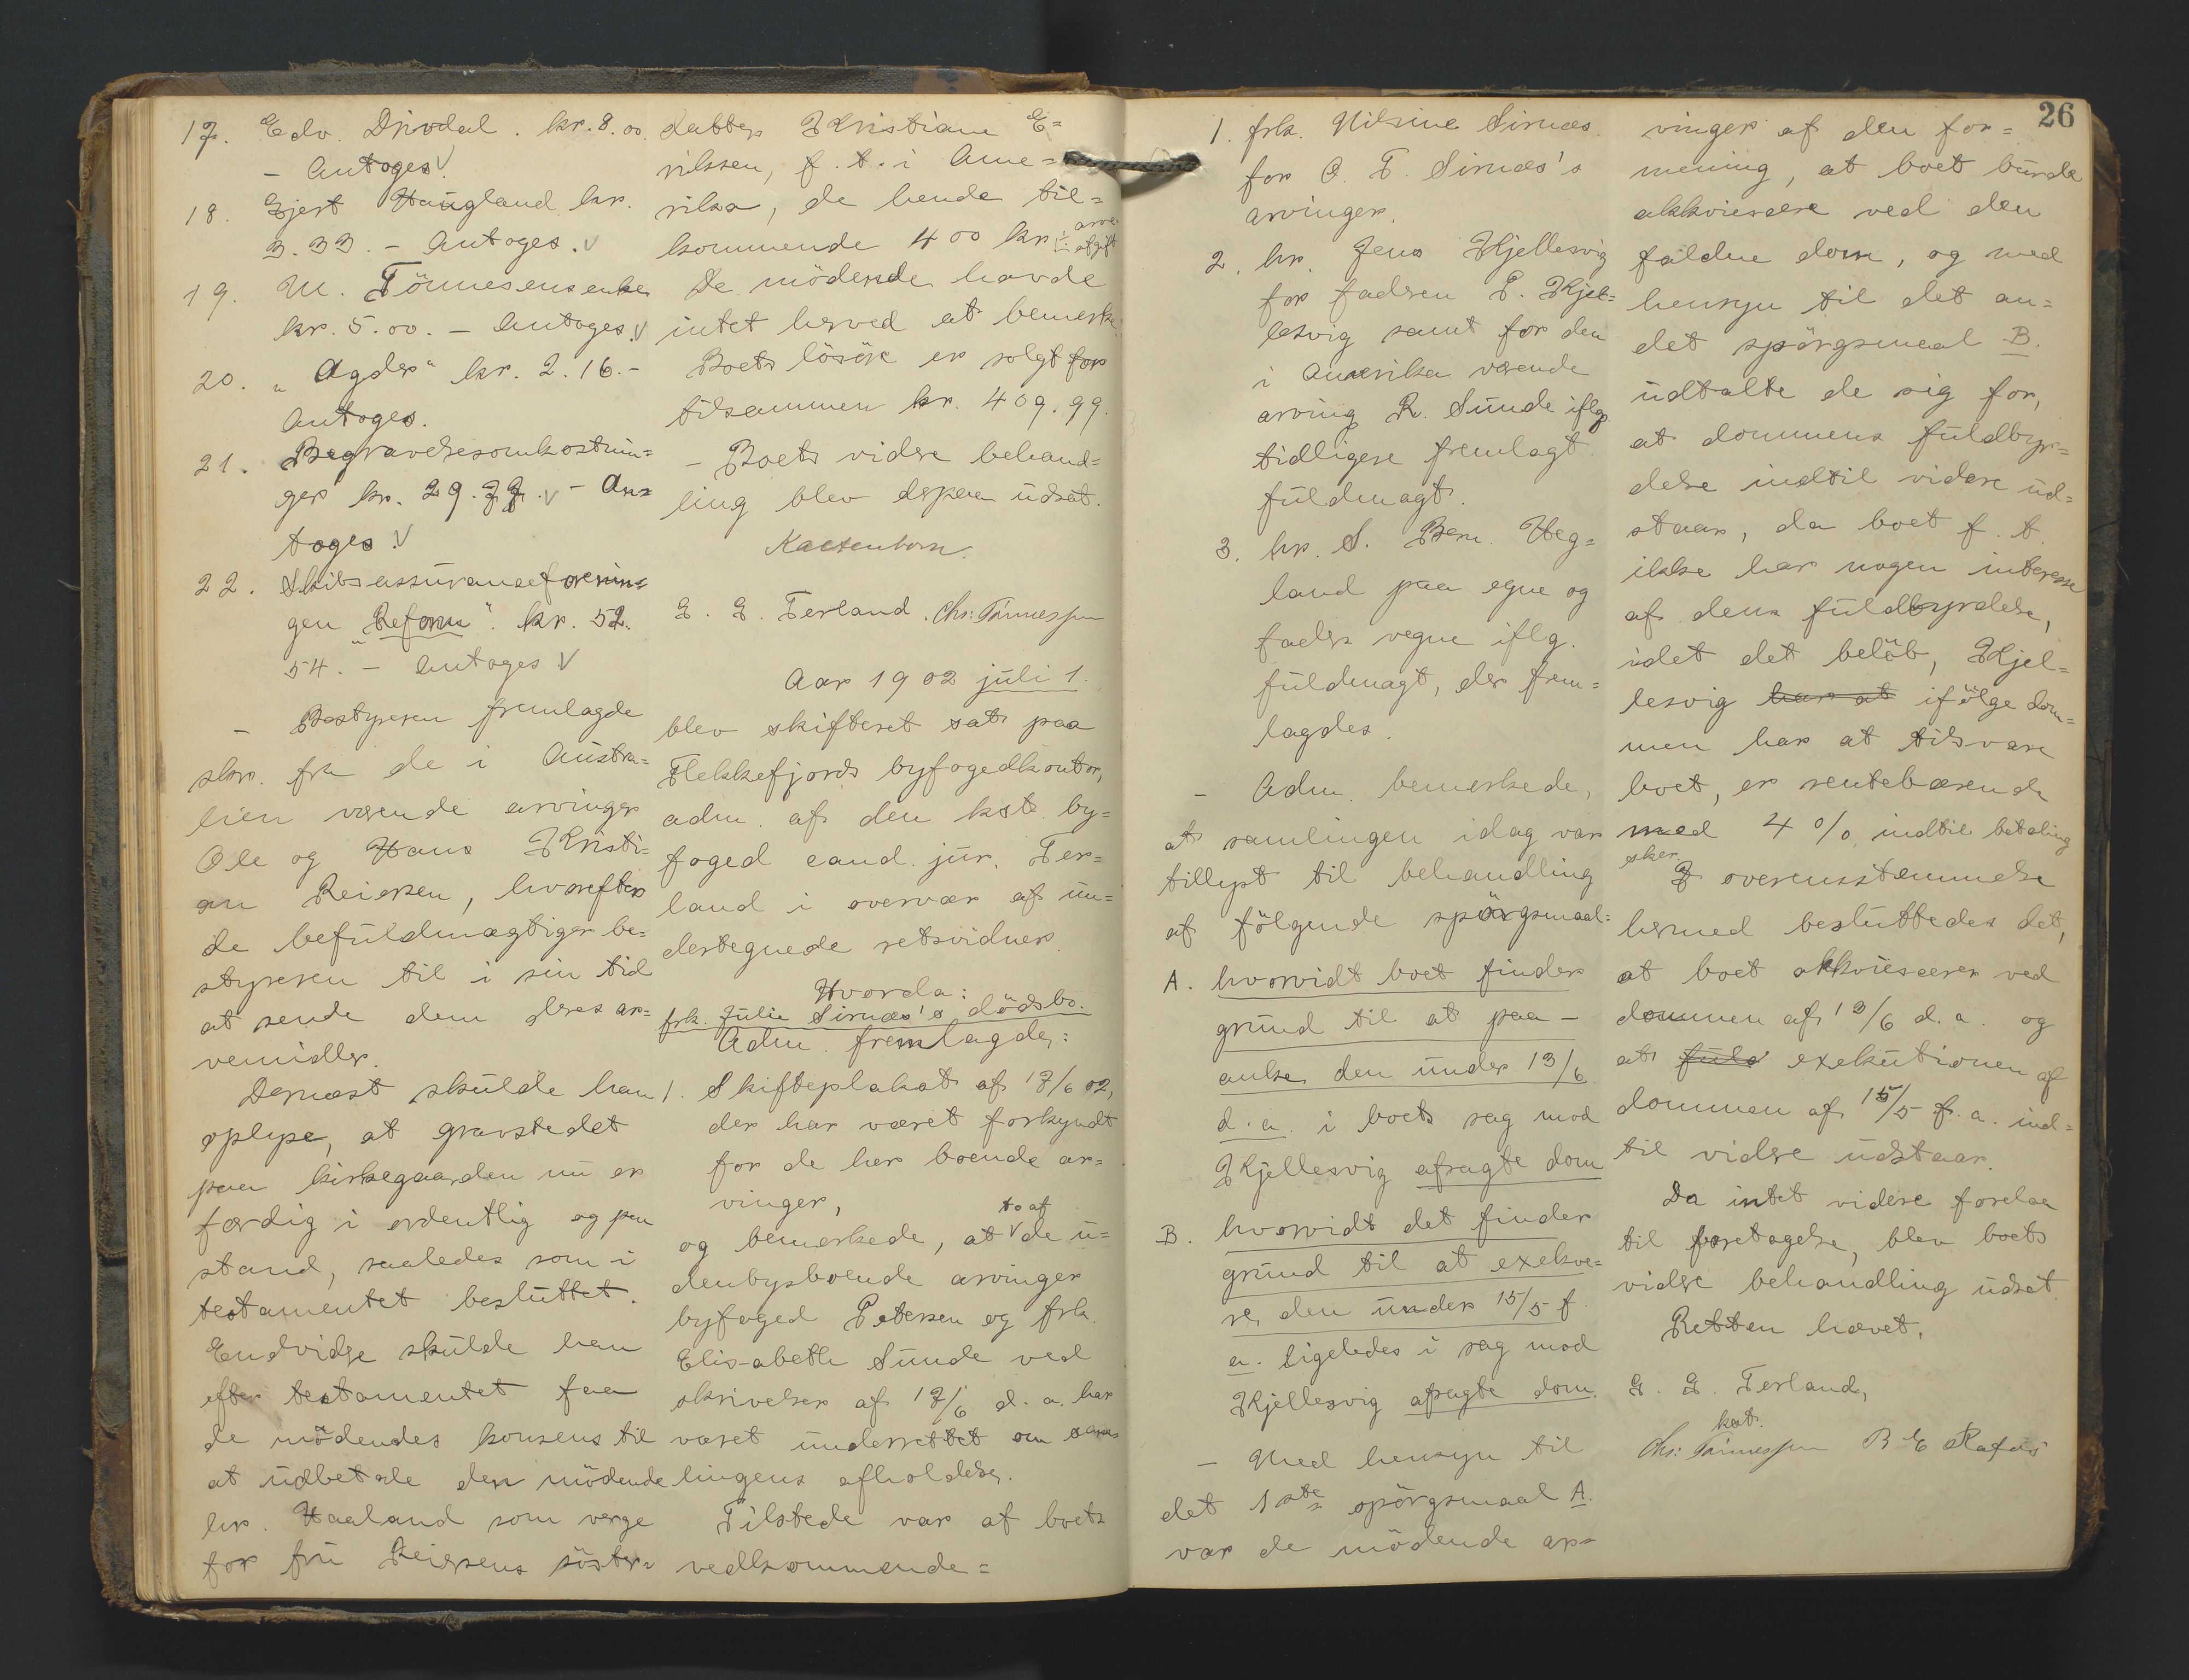 17. Edv. Djvdal. kr. 8.00.
– Antoges. √
18. Gjert Haugland kr.
3.33. – Antoges. √
19. M. Tönnesens enke
kr. 5.00. – Antoges. √
20. „Agder“ kr. 2.16. –
Antoges.
21. Begravelsesomkostnin=
ger kr. 29.77. √ – An=
toges. √
22. Skibsassuranceforenin=
gen „Reform“. kr. 52.
54. – Antoges √
– Bostyreren fremlagde
skr. fra de i Austra=
lien værende arvinger
Ole og Hans Kristi=
an Reiersen, hvorefter
de befuldmægtiger be=
styreren til i sin tid
at sende dem deres ar=
vemidler.
Dernæst skulde han
oplyse, at gravstedet
paa kirkegaarden nu er
færdig i ordentlig og pen
stand, saaledes som i
testamentet besluttet.
Endvidre skulde han
efter testamentet faa
de mödendes konsens til
at udbetale den mödende
hr. Haaland som verge
for fru Reiersens söster=
datter Kristiane E=
riksen, f. t. i Ame=
rika, de hende til=
kommende 400 kr. ÷ arve
afgift
De mödende havde
intet herved at bemerke.
Boets lösöre er solgt for
tilsammen kr. 409.99.
– Boets videre behand=
ling blev derpaa udsat.
Kaltenborn.
G. G. Terland. Chs: Tönnessen
Aar 1902 juli 1.
blev skifteret sat paa
Flekkefjords byfogedkontor,
adm. af den kst. by=
foged cand. jur. Ter=
land i overvær af un=
dertegnede retsvidner.
Hvorda:
frk. Julie Sirnæs's dödsbo.
Adm. fremlagde:
1. Skifteplakat af 17/6 02,
der har været forkyndt
for de her boende ar=
vinger,
og bemerkede, at √ to af de u=
denbysboende arvinger
byfoged Petersen og frk.
Elisabeth Sunde ved
skrivelser af 17/6 d. a. har
været underrettet om sam=
lingens afholdelse.
Tilstede var af boets
vedkommende=
26
1. frk. Nilsine Sirnæs
for O. T. Sirnæs's
arvinger.
2. hr. Jens Kjellesvig
for fadren P. Kjel=
lesvig samt for den
i Amerika værende
arving R. Sunde iflg.
tidligere fremlagt
fuldmagt.
3. hr. S. Bern. Heg=
land paa egne og
faders vegne iflg.
fuldmagt, der frem=
lagdes.
– Adm. bemerkede,
at samlingen idag var
tillyst til behandling
af fölgende spörgsmaal:
A. hvorvidt boet finder
grund til at paa–
anke den under 13/6
d. a. i boets sag mod
Kjellesvig afsagte dom
B. hvorvidt det finder
grund til at exekve=
re den under 15/5 f.
a. ligeledes i sag mod
Kjellesvig afsagte dom.
– Med hensyn til
det 1ste spörgsmaal A.
var de mödende ar=
vinger af den for=
mening, at boet burde
akkviescere ved den
faldne dom, og med
hensyn til det an=
det spörgsmaal B.
udtalte de sig for,
at dommens fuldbyr=
delse indtil videre ud=
staar, da boet f. t.
ikke har nogen interesse
af dens fuldbyrdelse,
idet det belöb, Kjel=
lesvig har at ifölge dom=
men har at tilsvare
boet, er rentebærende
med 4 %, indtil betaling
sker.
I overensstemmelse
hermed besluttedes det,
at boet akkviescerer ved
dommen af 13/6 d. a. og
at fuld exekutionen af
dommen af 15/5 f. a. ind=
til videre udstaar.
Da intet videre forelaa
til foretagelse, blev boets
videre behandling udsat.
Retten hævet.
G. G. Terland,
kst.
Chs: Tönnessen R E Rafos